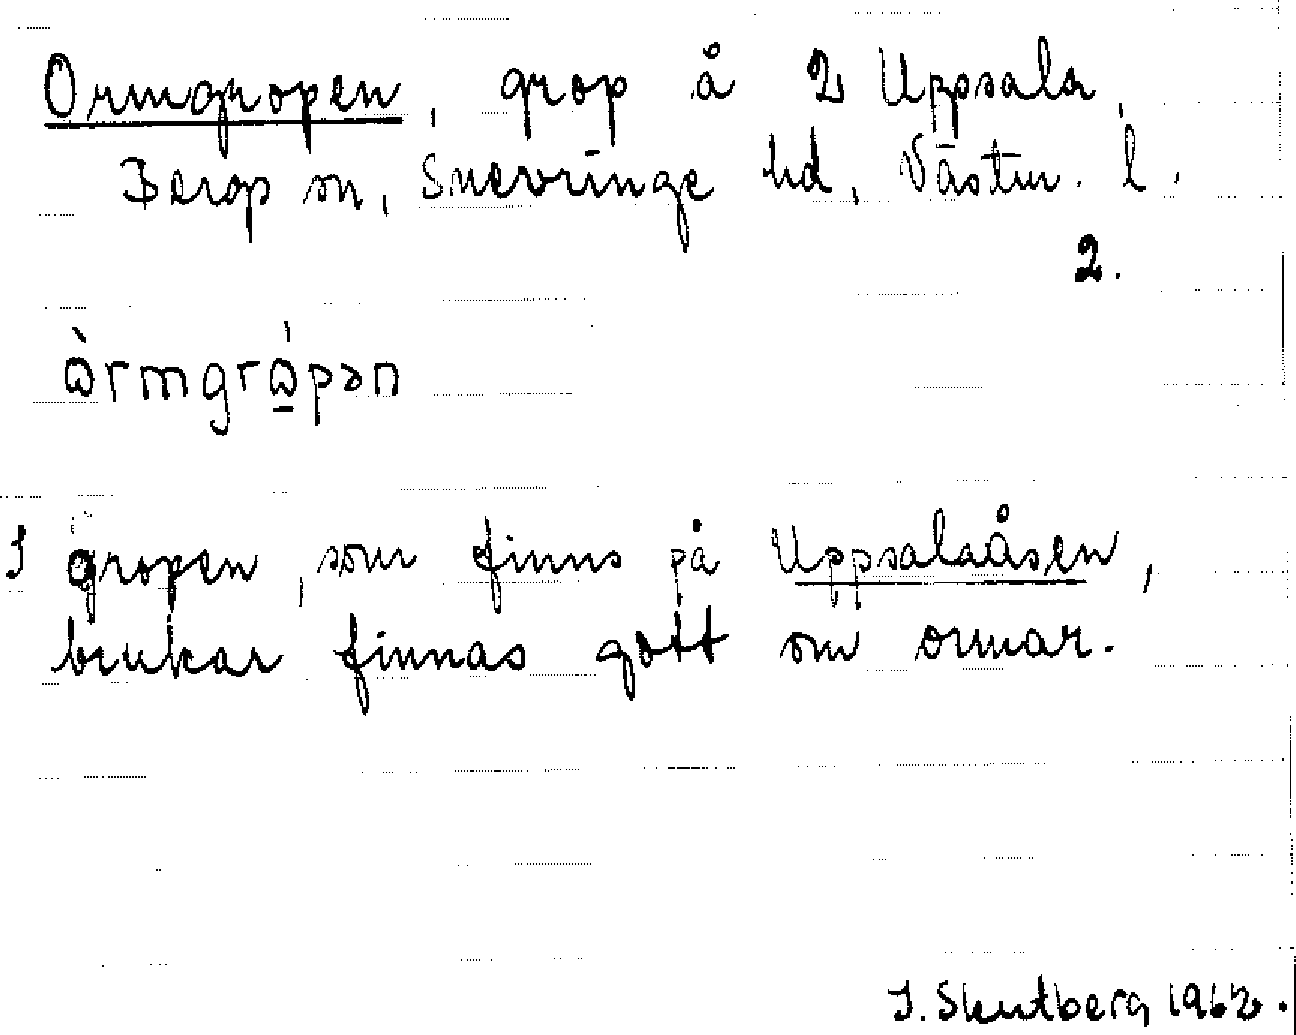 Ormgropen, grop å 2 Uppsala,
Bergs sn, Snevringe hd, Västm. l.
2.
òrmgrópən
I gropen, som finns på Uppsalaåsen,
brukar finnas gott om ormar.
I. Skutberg 1962.